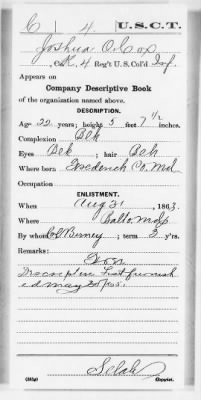 C | 4 | U.S.C.T.
Joshua O. Cox
, Co. K, 4 Reg't U. S. Col'd Inf.
Appears on
Company Descriptive Book
of the organization named above.
DESCRIPTION.
Age 22 years; height 5 feet 7 1/2 inches.
Complexion Blk
Eyes Blk ; hair Blk
Where born Frederick Co, Md
Occupation
ENLISTMENT.
When Aug 31 , 1863.
Where Balto, Md
By whom Birney ; term 3 y'rs.
Remarks:
Descriptive List furnish
ed May
Copyist.